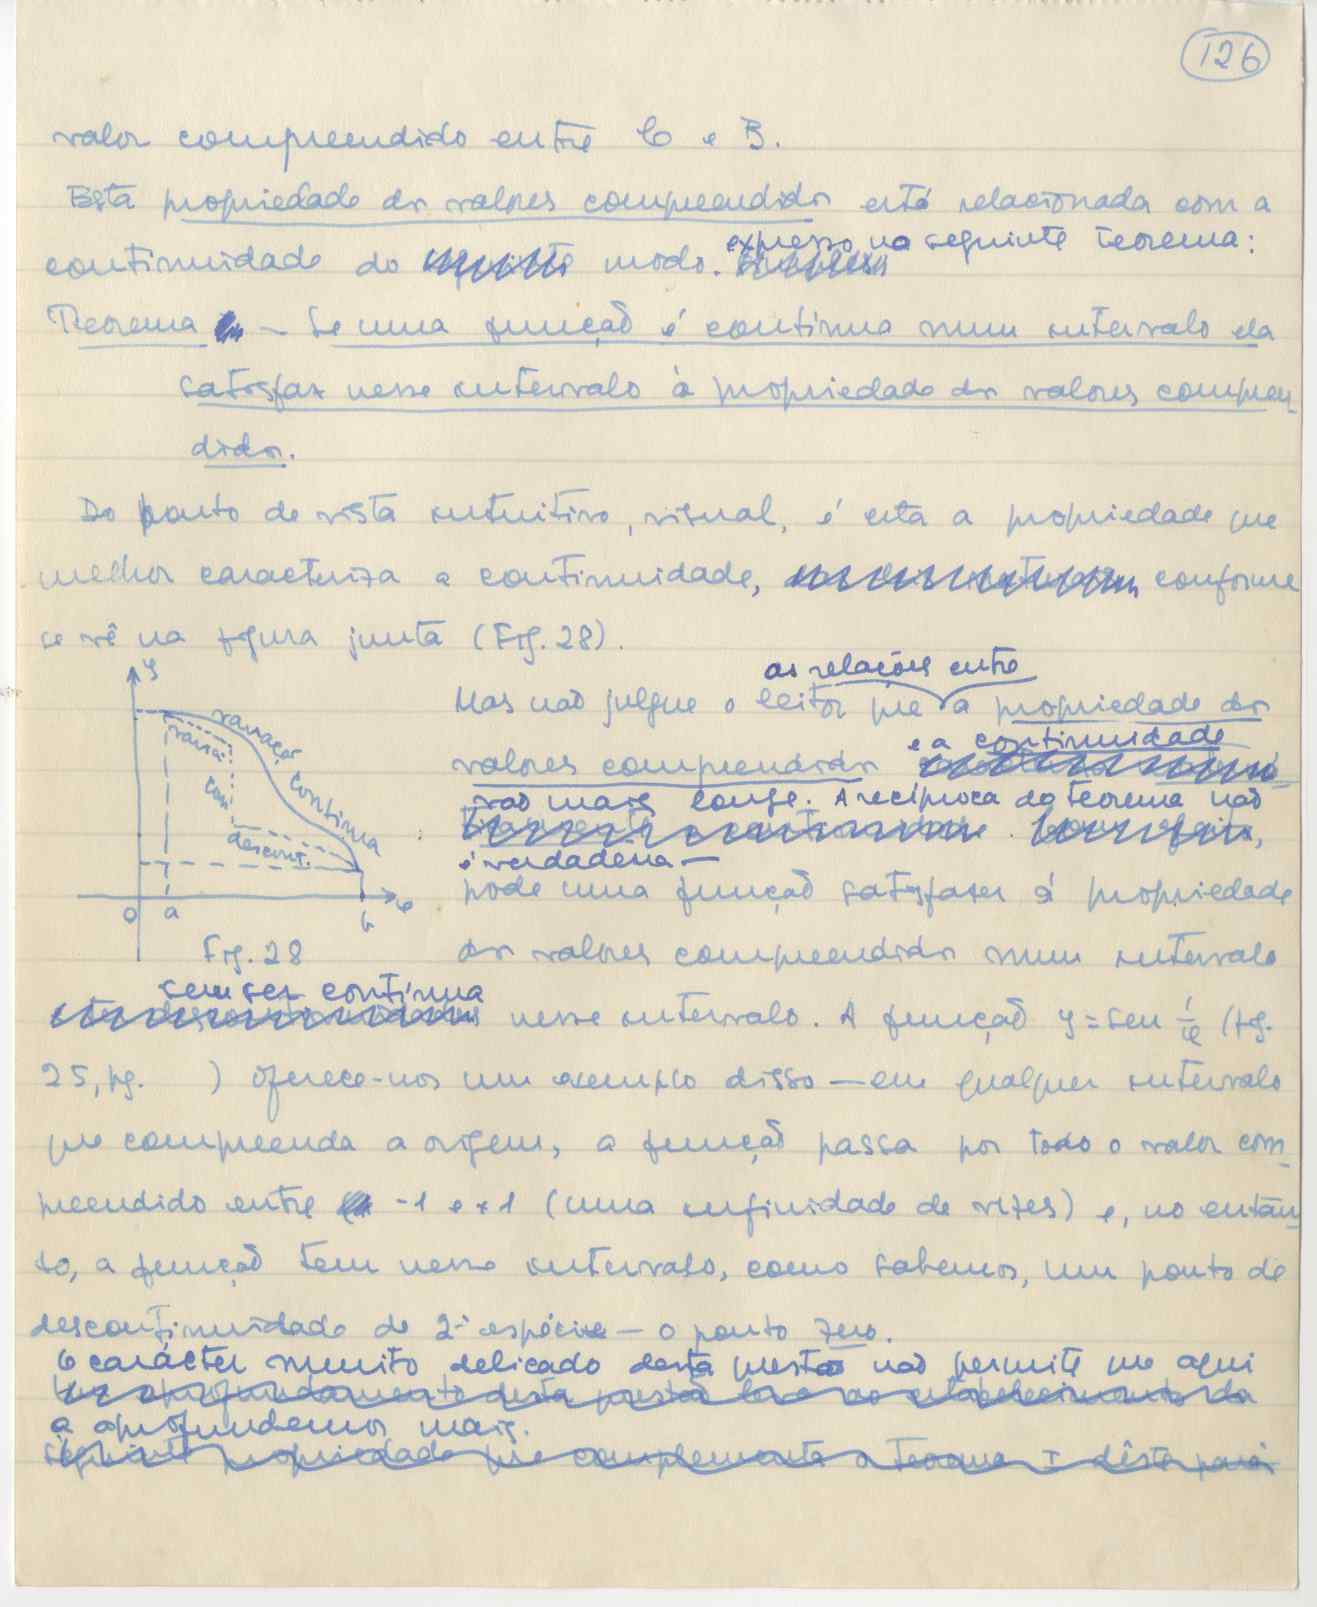 126
valor compreendido entre C e B.
Esta propriedade dos valores compreendidos está relacionada com a
expresso no seguinte teorema:
continuidade do modo.
Teorema — Se uma função é continua num intervalo ela
satisfaz nesse intervalo à propriedade dos valores compreen-
didos.
Do ponto de vista intuitivo, visual, é esta a propriedade que
melhor caracteriza a continuidade, conforme
se vê na figura junta (Fig. 28).
as relações entre
Mas não julgue o leitor que a propriedade dos
e a continuidade
valores compreendidos
vão mais longe. A recíproca do teorema não
é verdadeira —
pode uma função satisfazer à propriedade
dos valores compreendidos num intervalo
y
variação continua
variaç.
com
descont.
0 a b x
Fig. 28
sem ser contínua
nesse intervalo. A função y = sen 1/x (fig.
25, pg. ) oferece-nos um exemplo disso — em qualquer intervalo
que compreenda a origem, a função passa por todo o valor com-
preendido entre -1 e +1 (uma infinidade de vezes) e, no entan-
to, a função tem nesse intervalo, como sabemos, um ponto de
descontinuidade de 2ª espécie — o ponto zero.
O carácter muito delicado desta questão não permite que aqui
a aprofundemos mais.